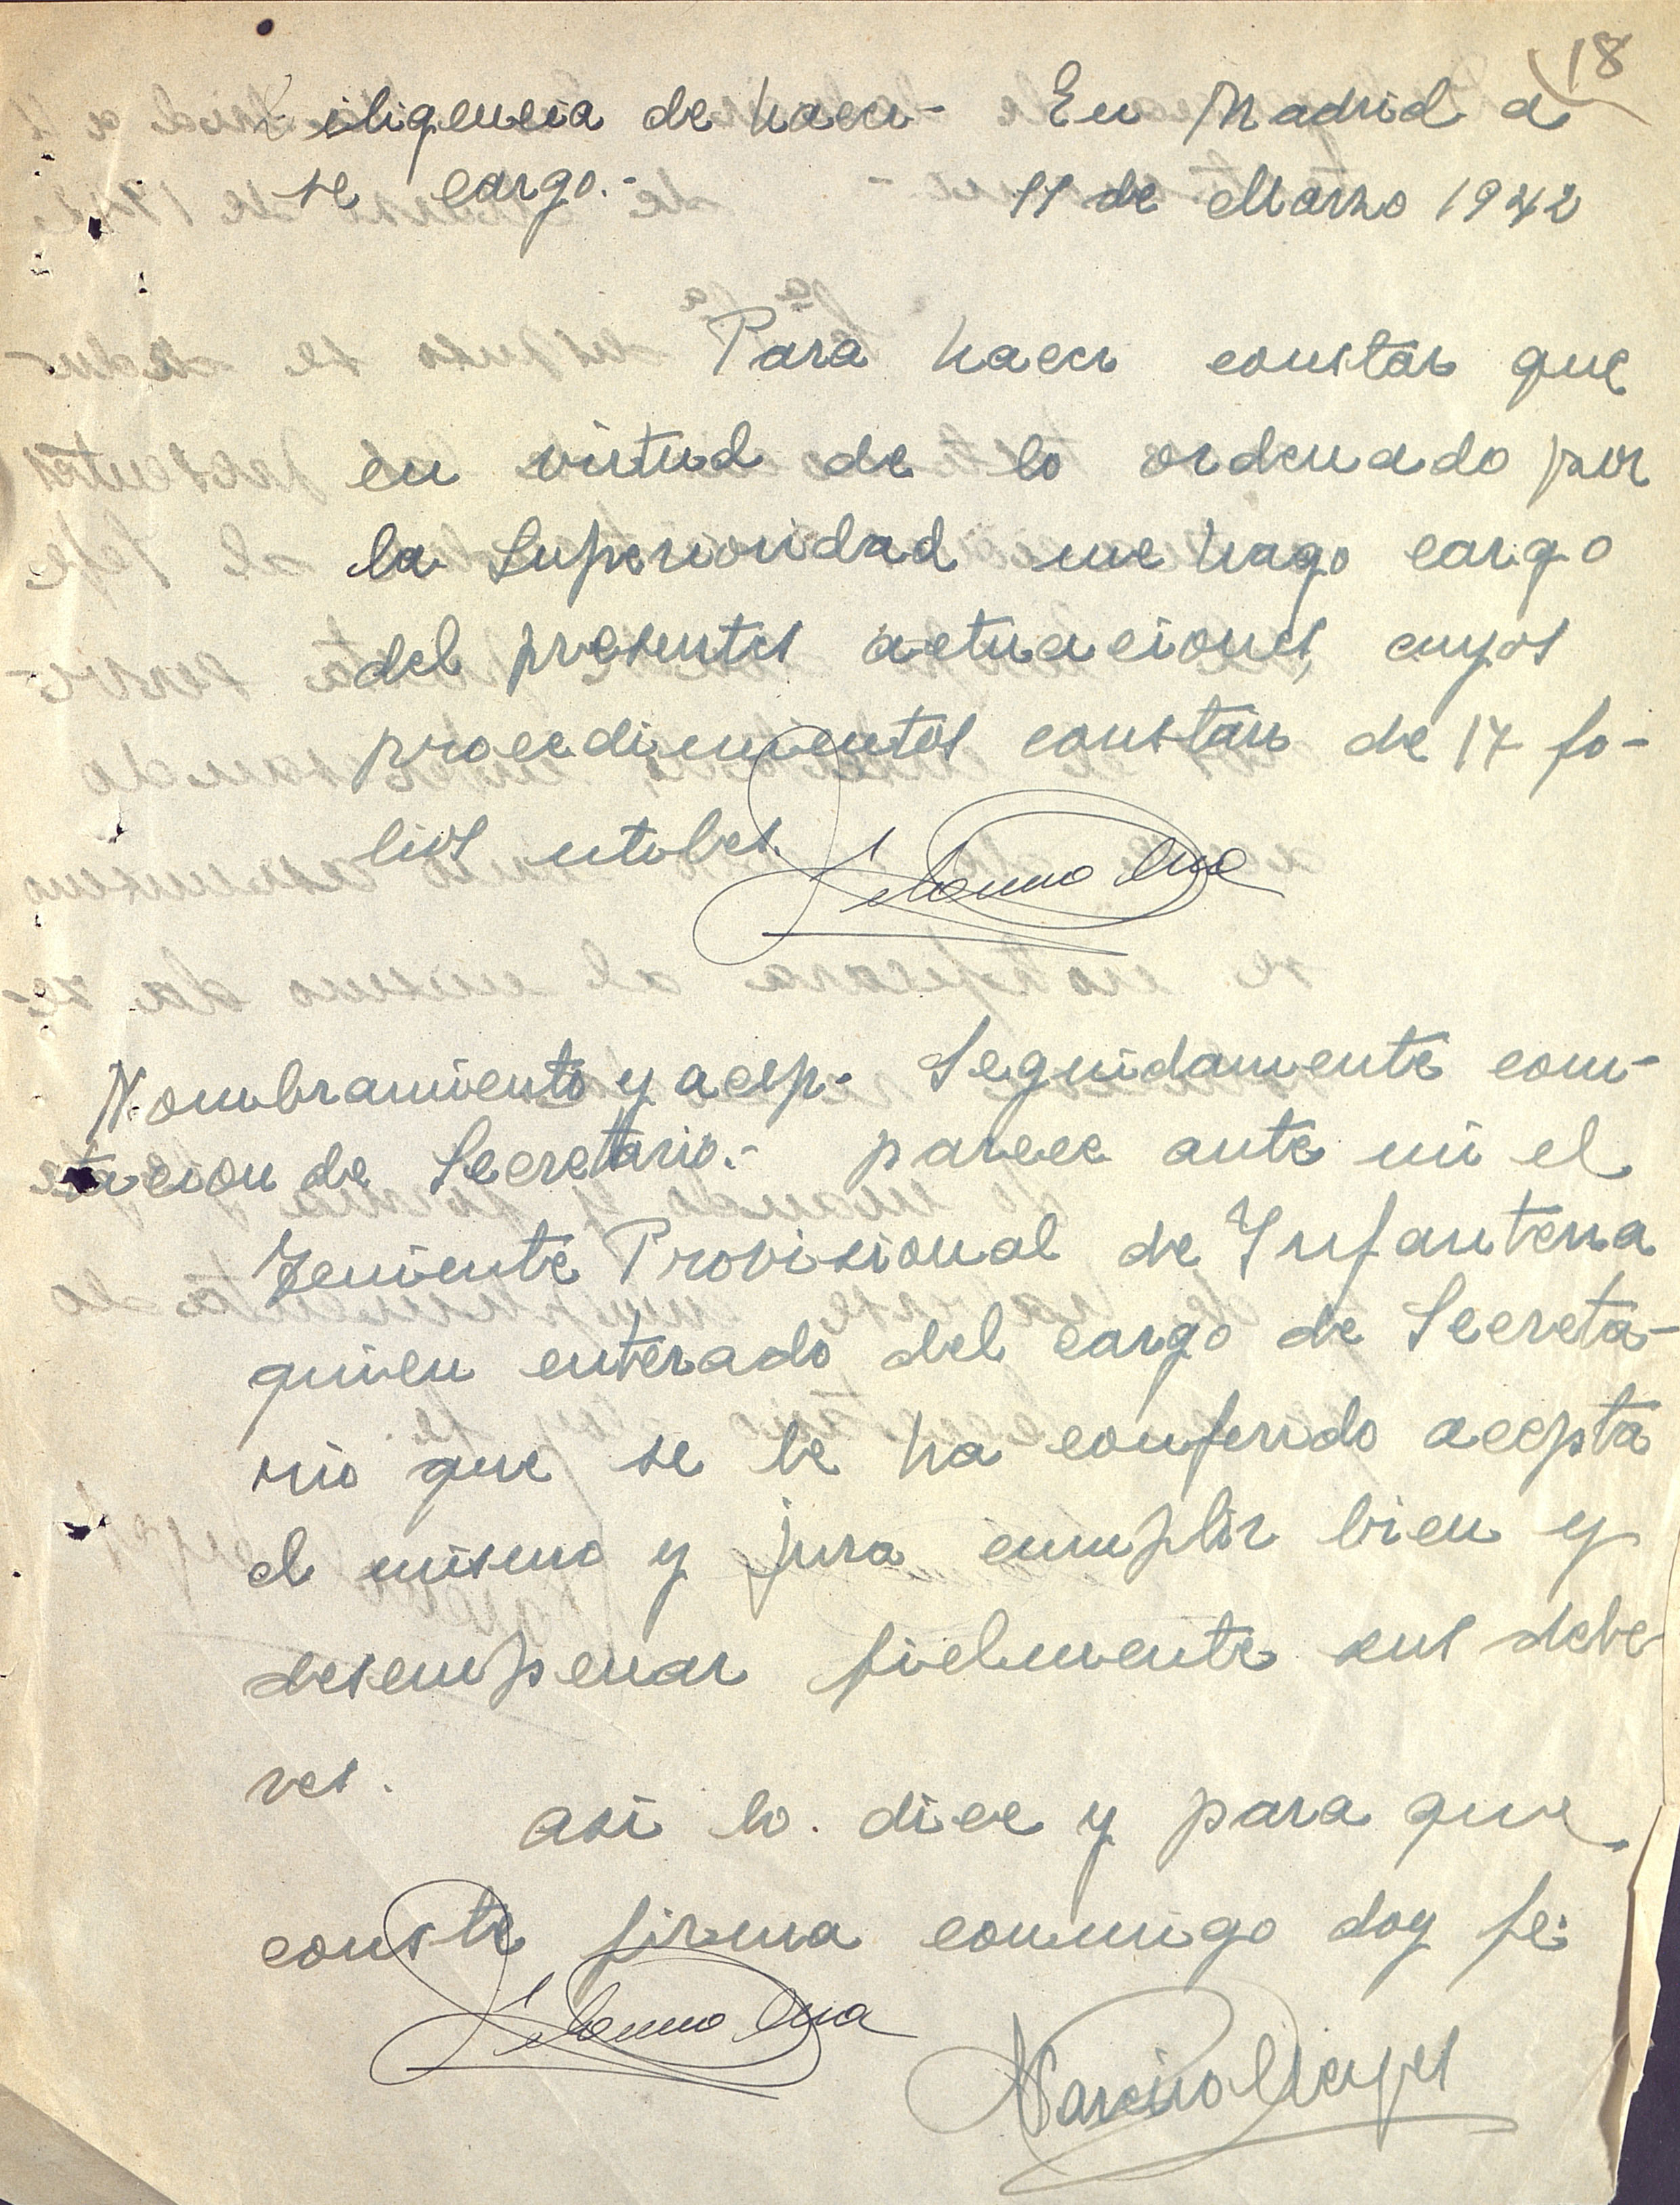 18
Diligencia de hacer-
se cargo.-
En Madrid a
11 de Marzo 1942
Para hacer constar que
en virtud de lo ordenado por
la Superioridad me hago cargo
del presentes actuaciones, cuyos
procedimientos constan de 17 fo-
lios utobes.
Nombramiento y acep-
tacion de Secretario.-
Seguidamente com-
parece ante mi el
Teniente Provisional de Infanteria
quien enterado del cargo de Secreta-
rio que se le ha conferido acepta
el mismo y jura cumplir bien y
desempenar fielmente sus debe-
res.
asi lo dice y para que
conste firma conmigo doy fe.
Narciso